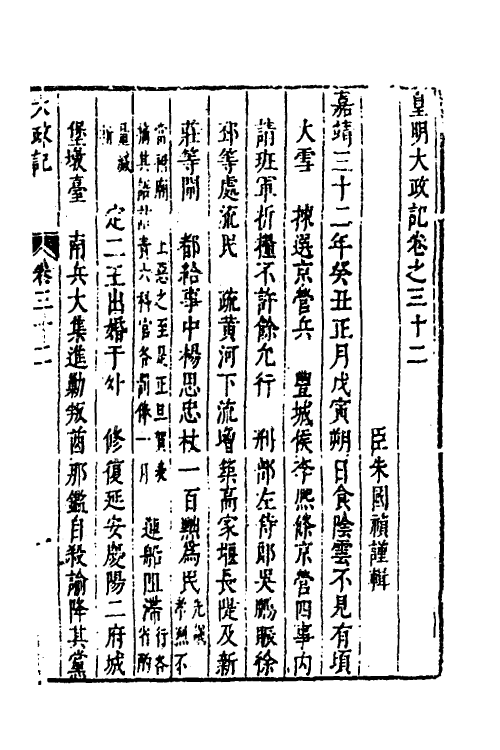 皇明大政記卷之三十二
臣朱國禎謹輯
嘉靖三十二年癸丑正月戊寅朔日食陰雲不見有頃
大雪　揀選京營兵　豐城侯李熙條京營四事內
請班軍折糧不許餘允行　刑部左侍郎吳鵬賑徐
邳等處流民　疏黃河下流增築高家堰長隄及新
莊等閘　都給事中楊思忠杖一百黜為民先議孝烈不
當祔廟上惡之至是正旦賀表摘其語杖責六科官各罰俸一月　運船阻滯行各省酌
量減　定二王出婚于外　修復延安慶陽二府城
堡墩臺　南兵大集進勦叛酋那鑑自殺諭降其黨
大政記　卷三十二　一